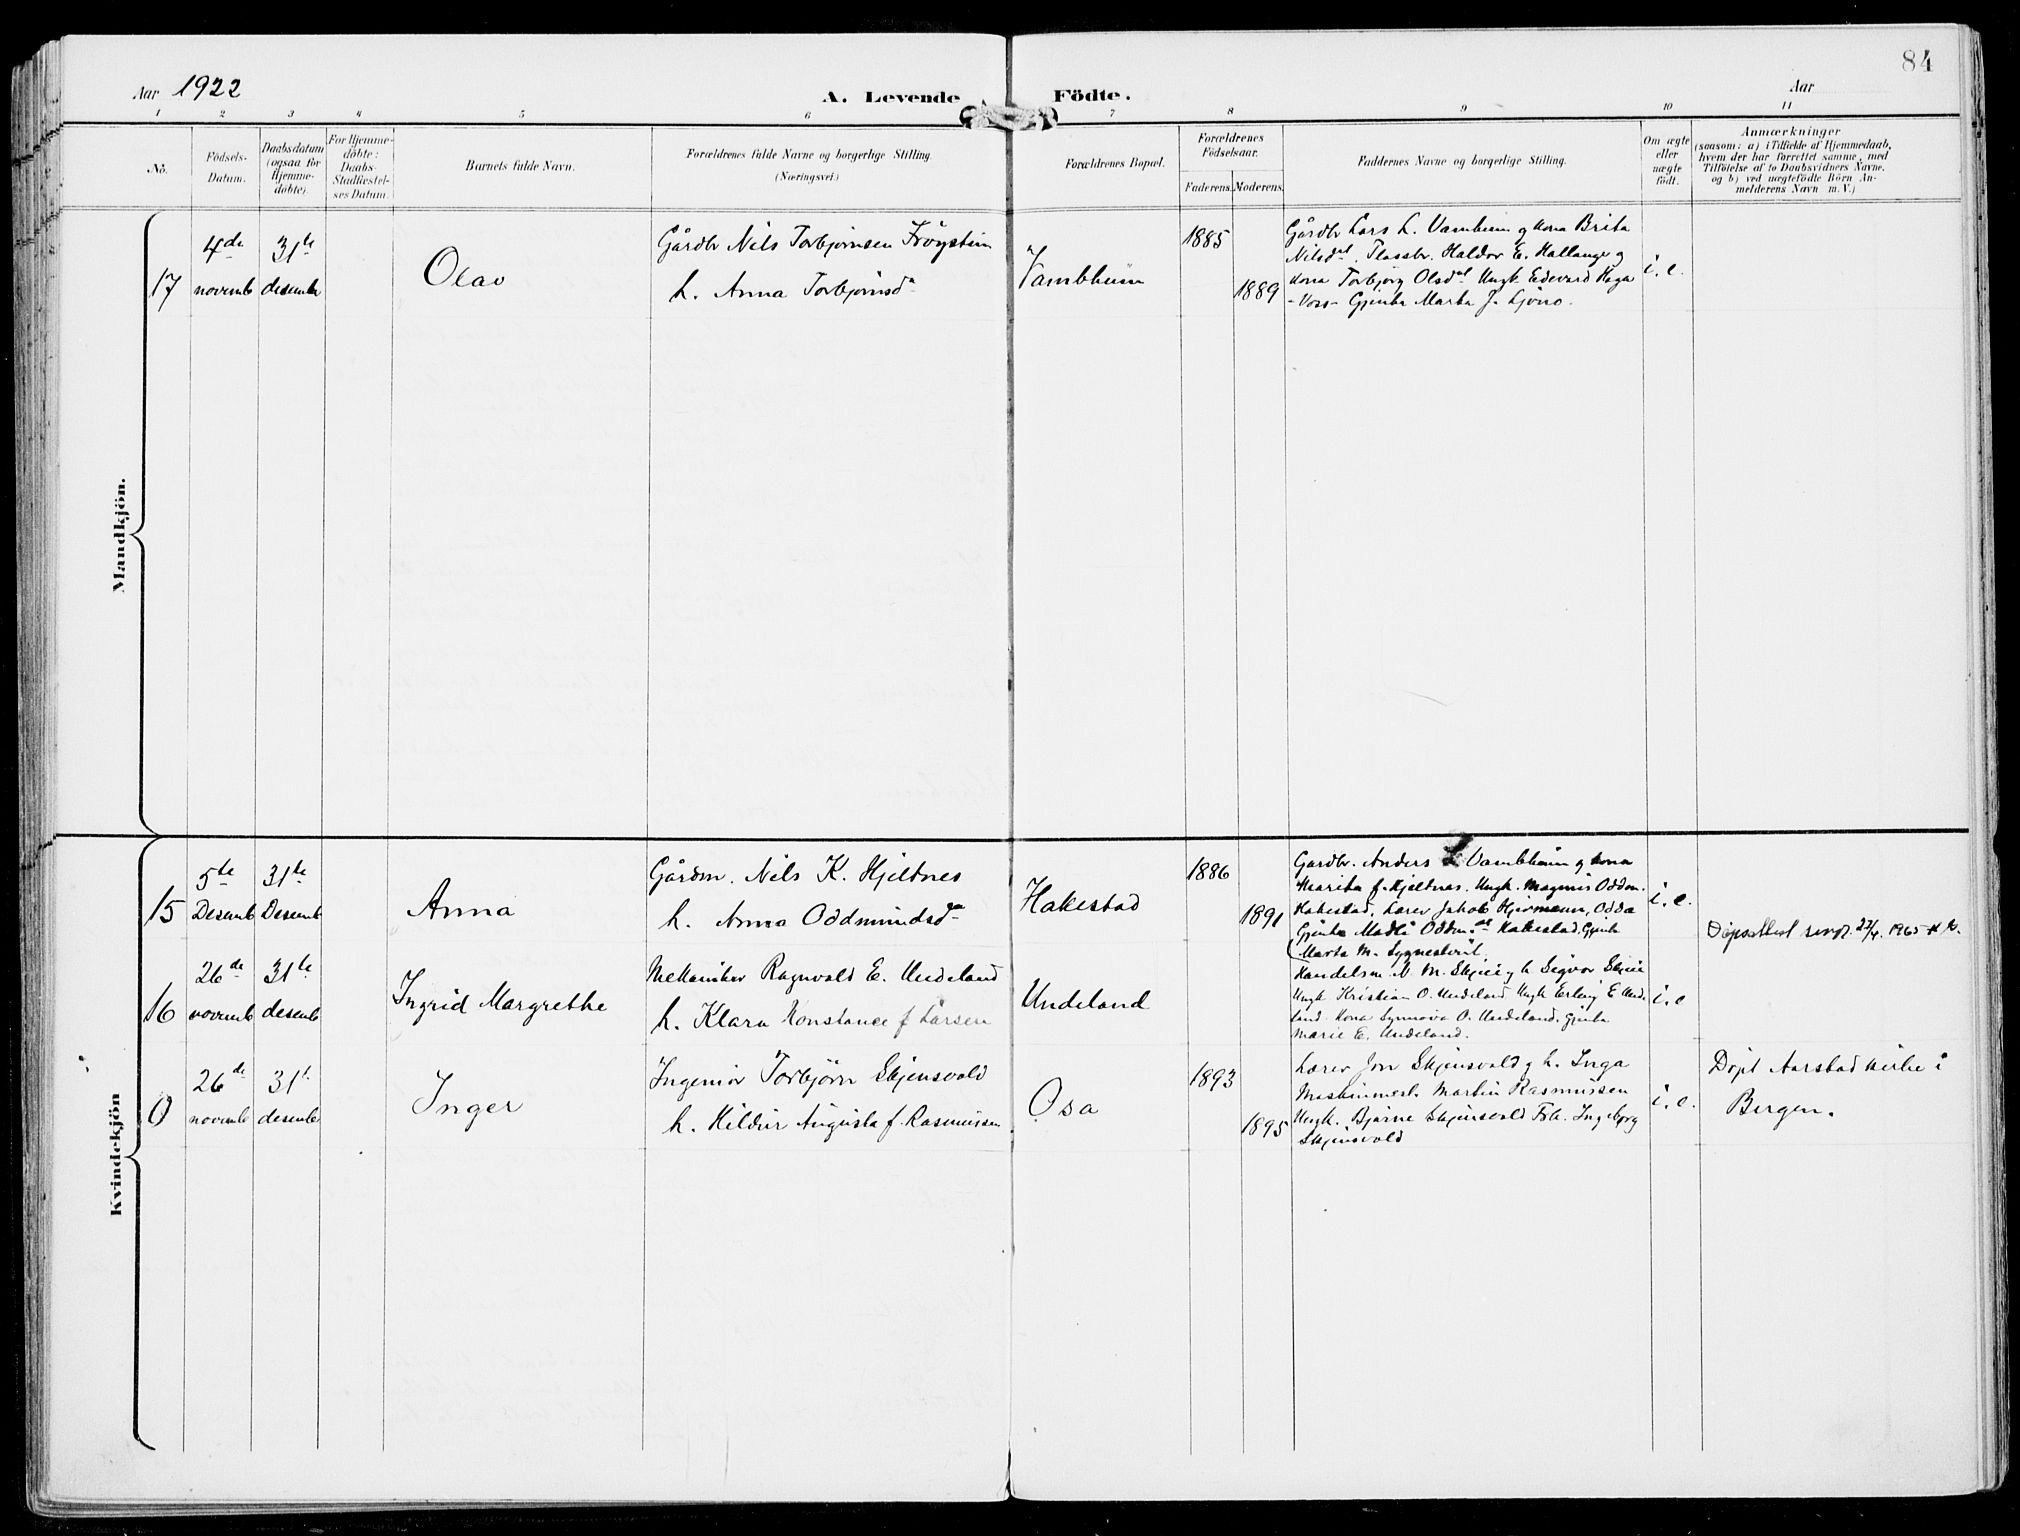 84
Aar 1922
A. Levende Födte.
Aar
1 2 3 4 5 6 7 8 9 10 11
No.
Födsels-
Datum.
Daabsdatum
(ogsaa for
Hjemme-
döbte).
For Hjemme-
döbte:
Daabs-
Stadfæstel-
ses Datum.
Barnets fulde Navn.
Forældrenes fulde Navne og borgerlige Stilling
(Næringsvei.)
Forældrenes Bopæl.
Forældrenes
Födselsaar.
Faderens. Moderens.
Faddernes Navne og borgerlige Stilling.
Om ægte
eller
uægte
födt.
Anmærkninger
(saasom: a) i Tilfælde af Hjemmedaab,
hvem der har forrettet samme, med
Tilföielse af to Daabsvidners Navne,
og b) ved uægtefödte Börn An-
melderens Navn m. V.)
Mandkjön.
17
4de
novemb
31te
desemb
Olav
Gårdbr Nils Torbjørnsen Frøystein
h. Anna Torbjørnsd
Vambheim
1885
1889
Gårdbr Lars L. Vambheim og kona Brita
Nilsdt. Plassbr. Haldor E. Hallanger og
kona Torbjørg Olsdt Ungk. Edevard Haga
- Voss - Gjenta Marta J. Ljono.
i. e.
Kvindekjön
15
5te
Desemb
31te
Desemb
Anna
Gårdm. Nils K. Hjeltnes
h. Anna Oddmundsd
Hakestad
1886
1891
Gardbr. Anders L Vambheim og kona
Marita f. Hjeltnes. Ungk. Magnus Oddm.
Hakestad, Lærer Jakob Hjermann, Odda
Gjenta Madli Oddm. dt Hakestad, Gjenta
Marta M. Sygnestveit.
i. e.
Døpsattest 27/4. 1965
16
26de
novemb
31te
desemb
Ingrid Margrethe
Mekaniker Ragnvald E. Undeland
h. Klara Konstance f Larsen
Undeland
Handelsm. M. M. Skjeie og h Sigvor Skjeie
Ungk Kristian O. Undeland Ungk Erling E Und.
land. Kona Synnøva O. Undeland. Gjenta
Marie E. Undeland.
i. e
0
26de
novemb
31t
desemb
Inger
Ingeniør Torbjørn Skjensvold
h. Hildur Augusta f. Rasmussen
Osa
1893
1895
Lærer Jon Skjensvold og h. Inga
Maskinmest. Martin Rasmussen
Ungk. Bjarne Skjensvold Frk. Ingeborg
Skjensvold
i. e.
Døpt Aarstad kirke i
Bergen.